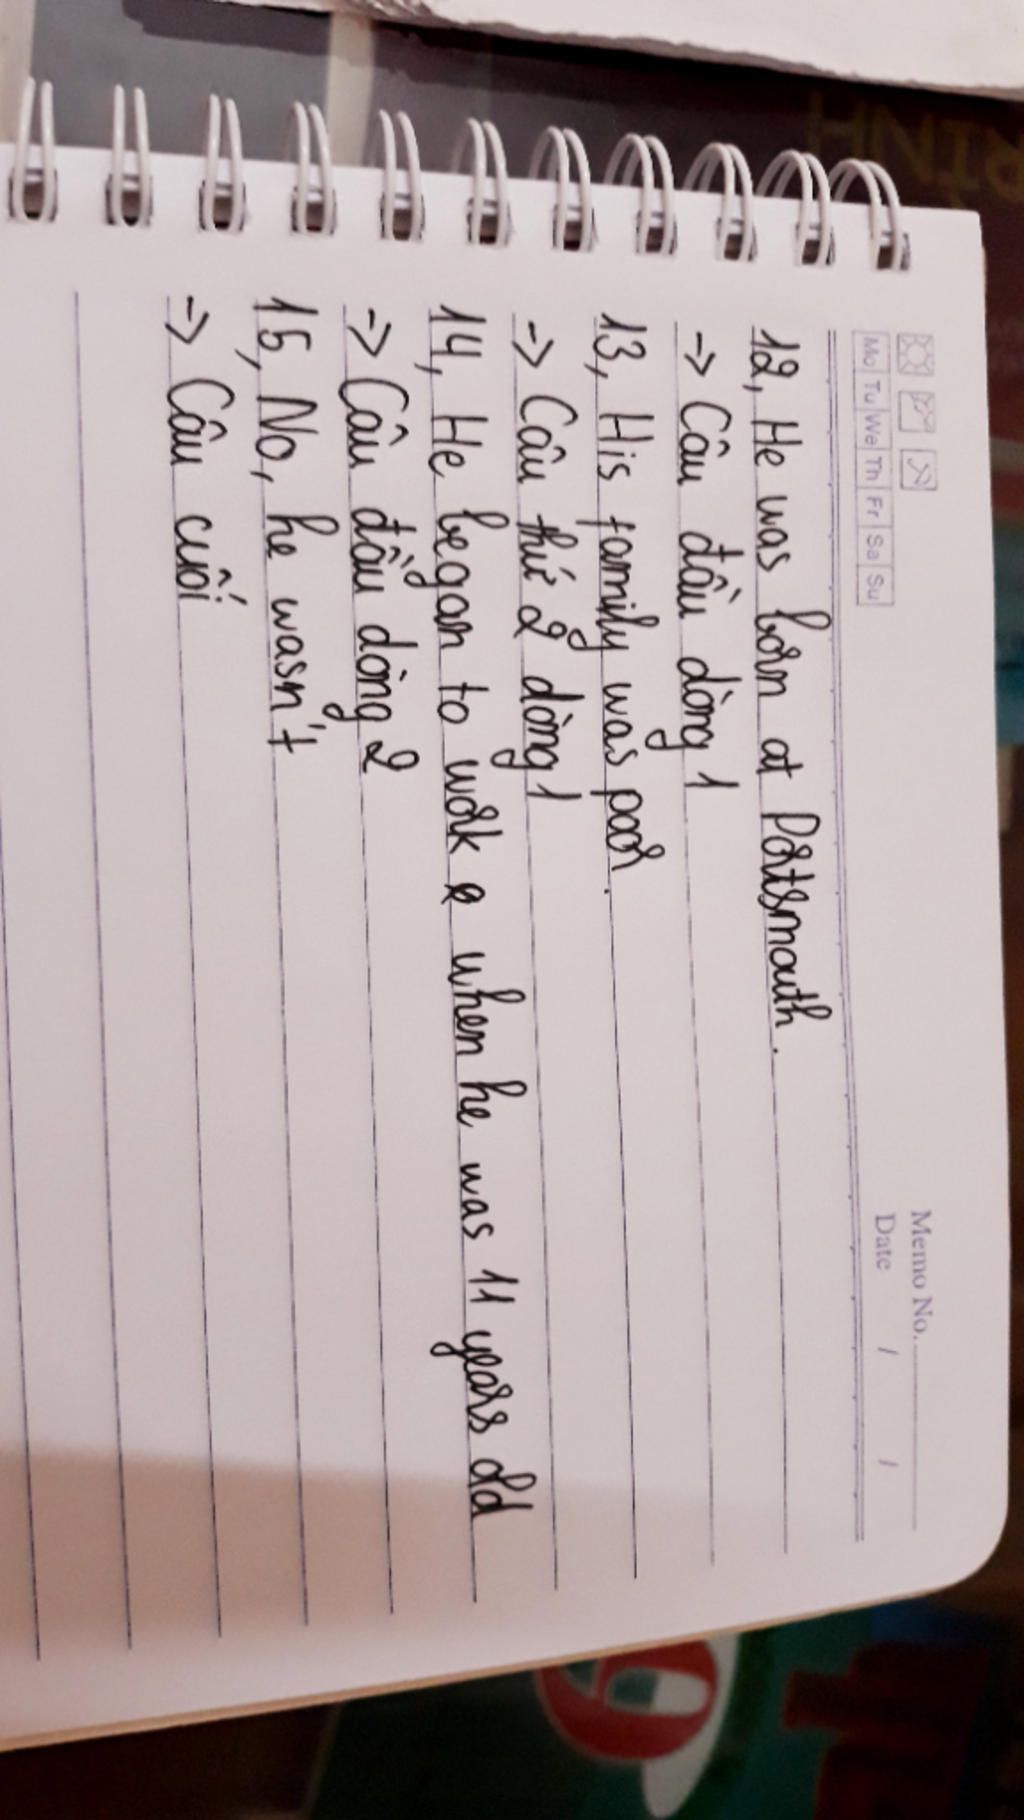 RINH
Memo No.
Date / /
Mo Tu We Th Fr Sa Su
12, He was born at Portsmouth.
-> Câu đầu dòng 1
13, His family was poor.
-> Câu thứ 2 dòng 1
14, He began to work when he was 11 years old
-> Câu đầu dòng 2
15, No, he wasn't
-> Câu cuối